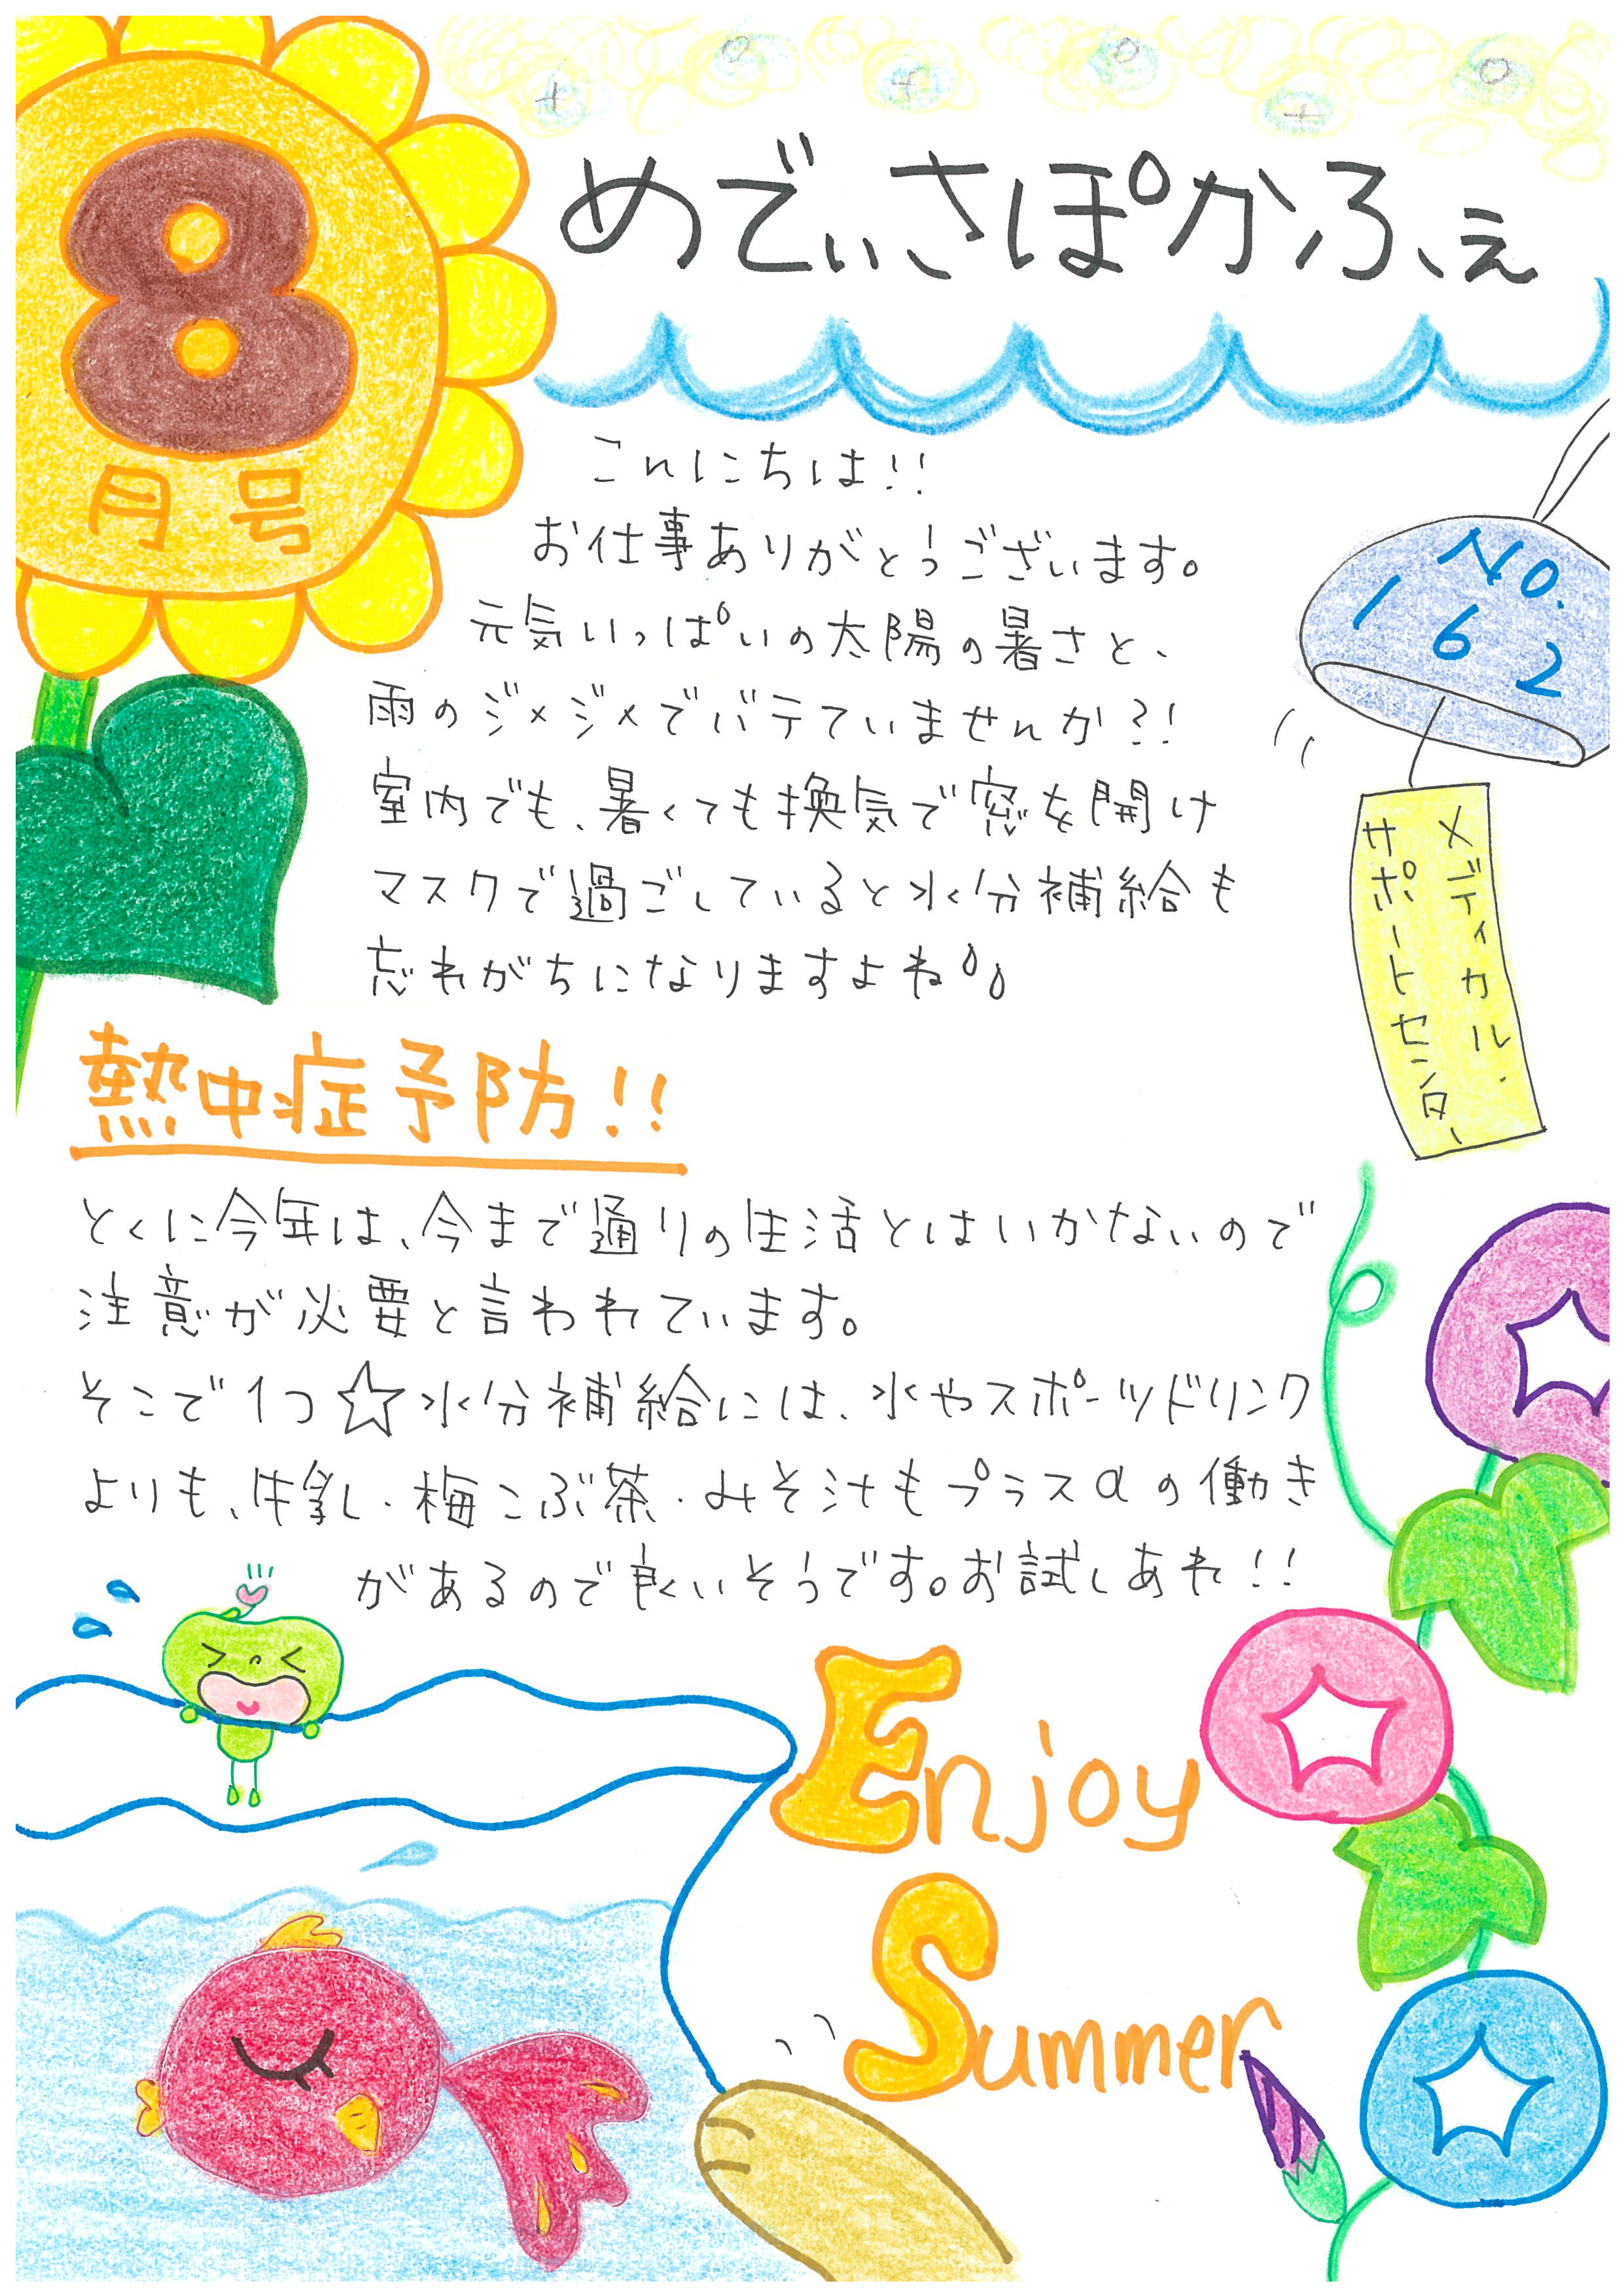 8
月号
めでぃさぽかふぇ
NO.
162
メディカル.
サポートセンター
こんにちは!!
お仕事ありがとうございます。
元気いっぱいの太陽の暑さと、
雨のジメジメでバテていませんか?!
室内でも、暑くても換気で窓を開け
マスクで過ごしていると水分補給も
忘れがちになりますよね
熱中症予防!!
とくに今年は、今まで通りの生活とはいかないので
注意が必要と言われています。
そこで1つ☆水分補給には、水やスポーツドリンク
よりも、牛乳・梅こぶ茶・みそ汁もプラスαの働き
があるので良いそうです。お試しあれ!!
Enjoy
Summer